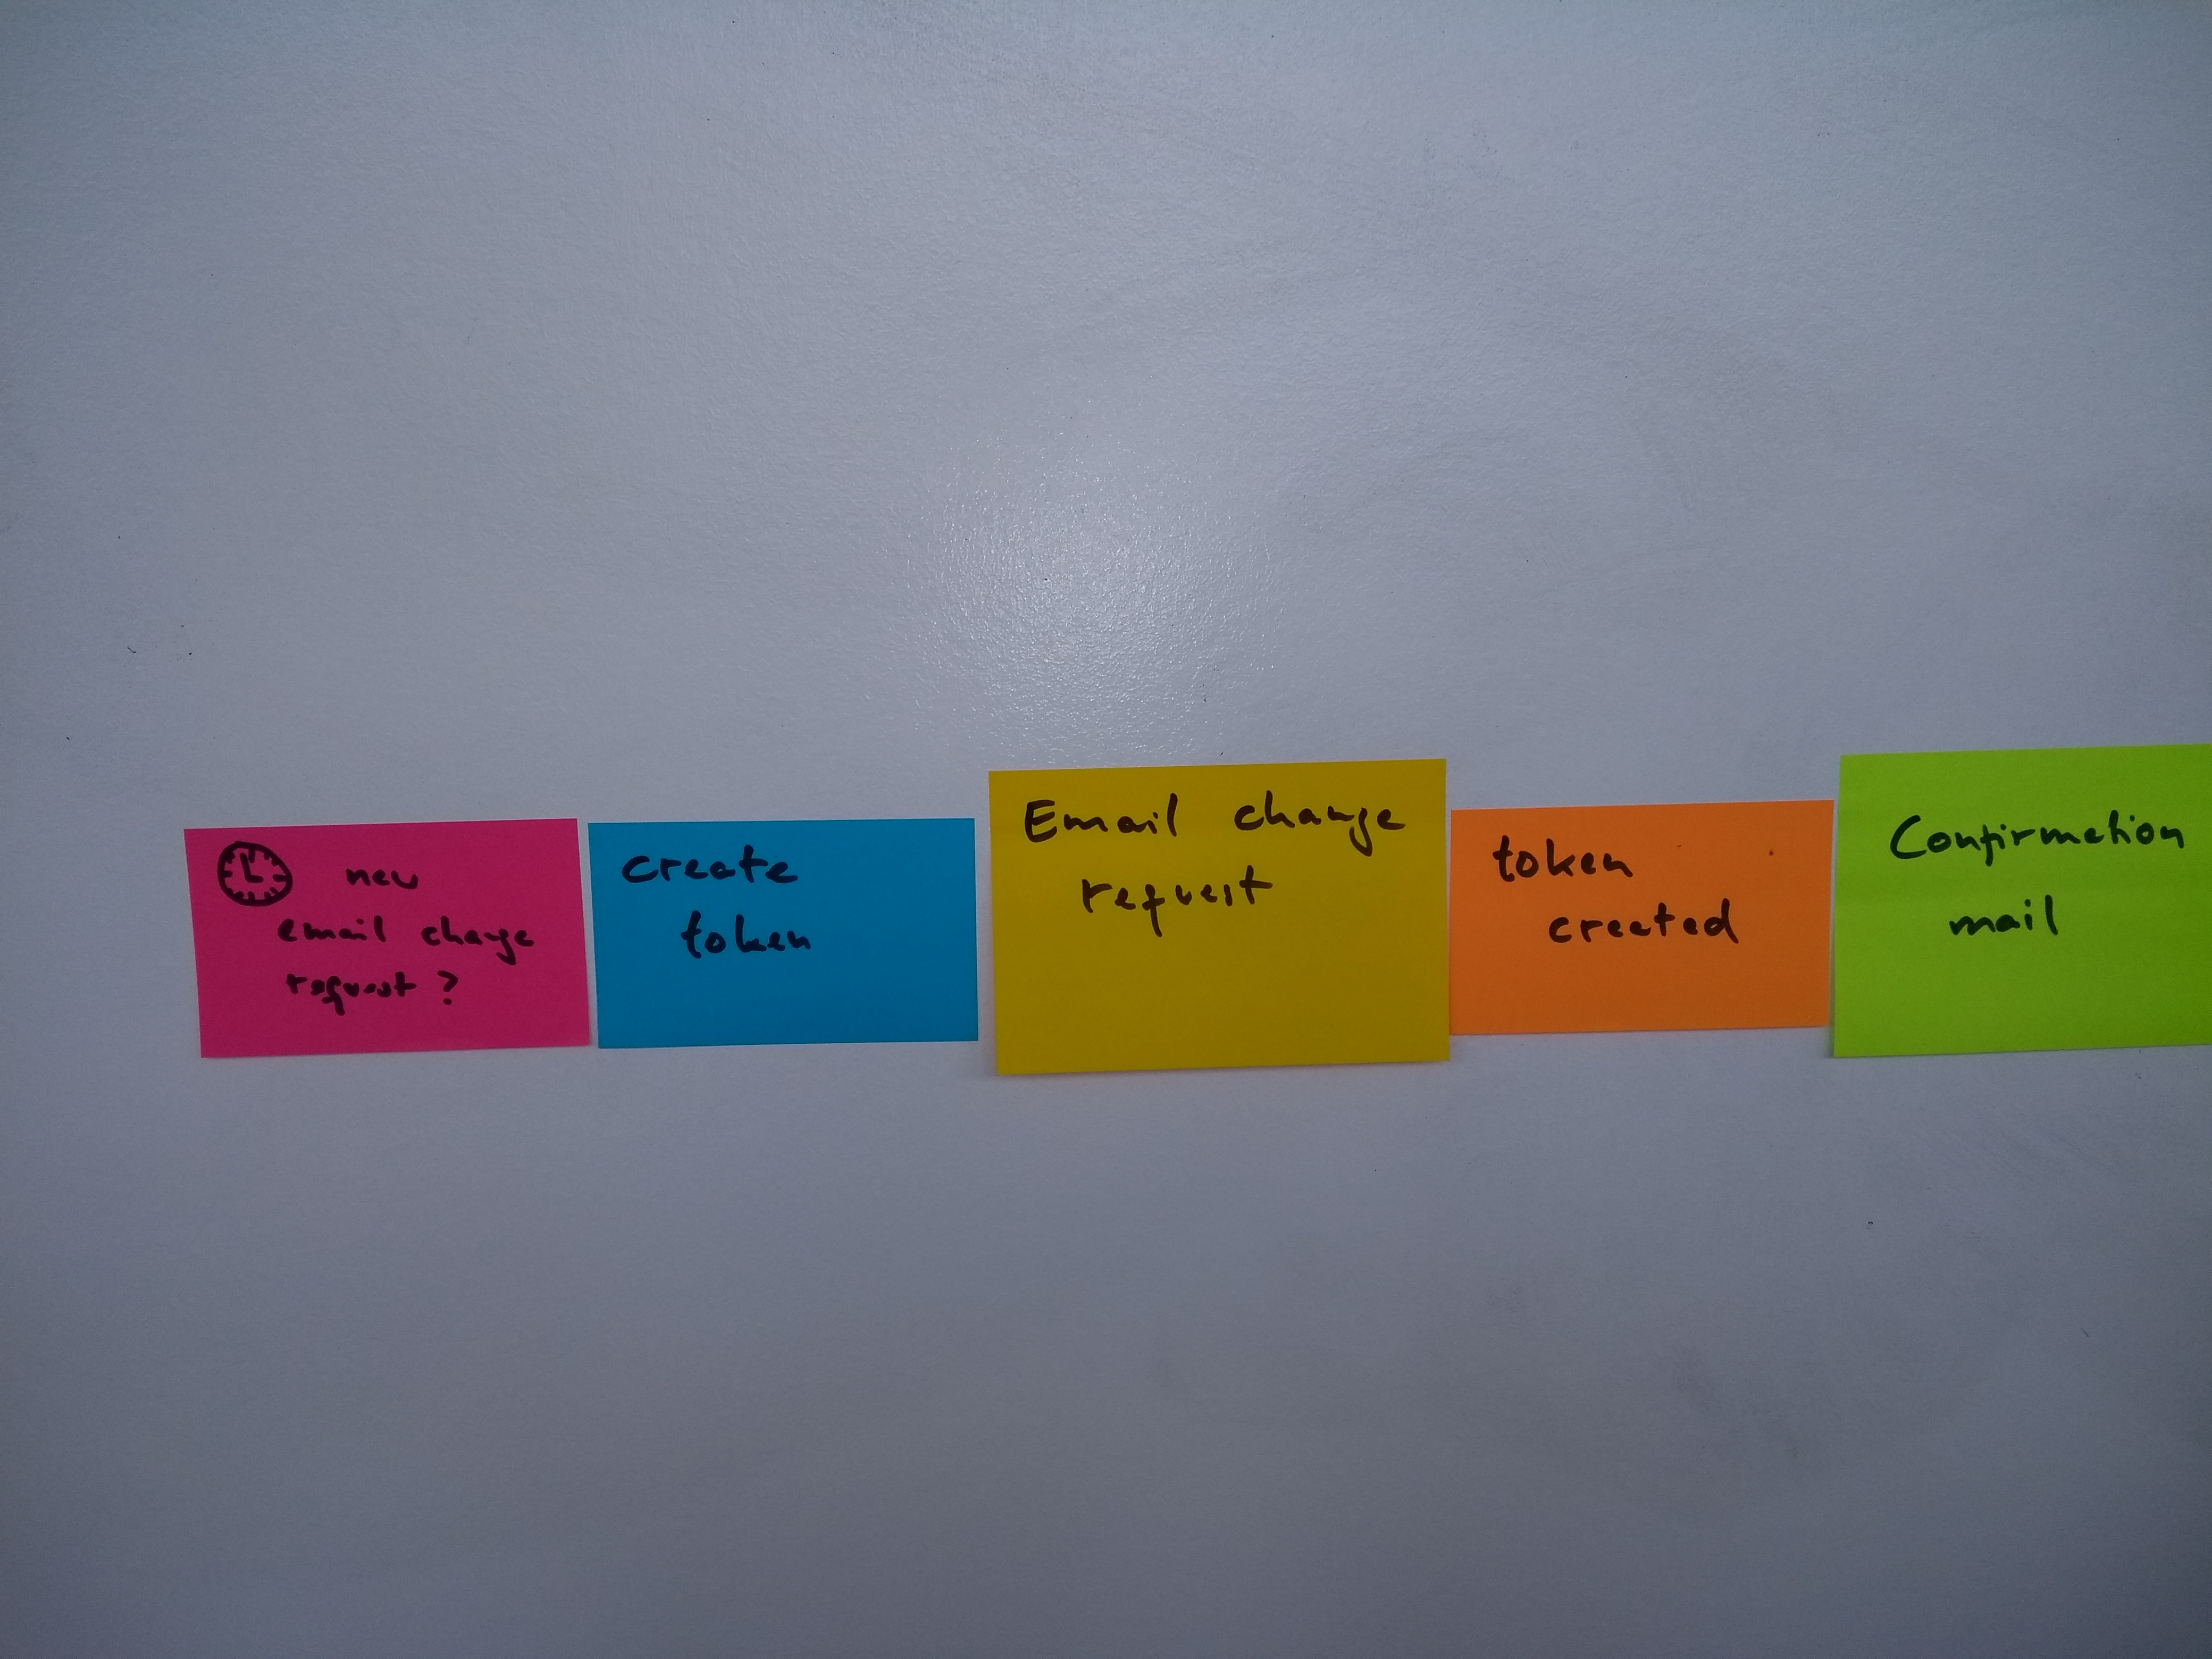 new
email change
request ?
create
token
Email change
request
token
created
Confirmation
mail